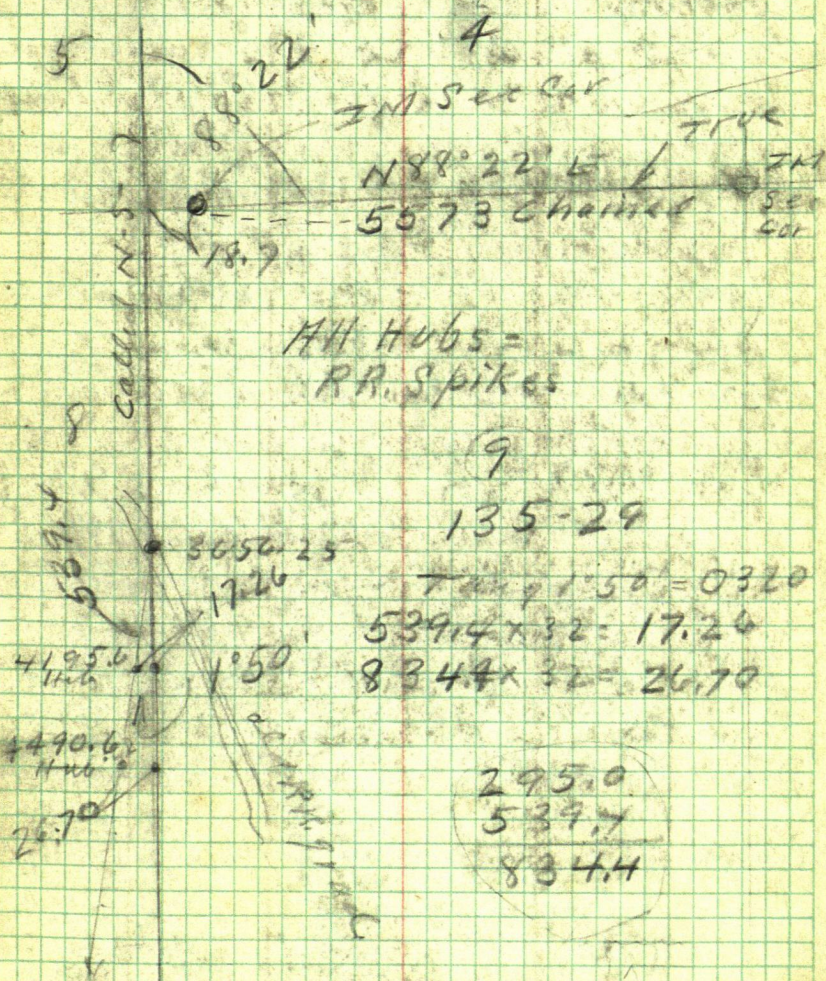 5
4
88° 22'
IM Sec Cor
True
N 88° 22' E
5573 Chained
IM
Sec
Cor
18.7
Called N-S
All Hubs =
RR. Spikes
8
9
135-29
539.4
3656.25
17.26
Tang 1°50' = 0320
539.4 x 32 = 17.26
834.4 x 32 = 26.70
4195.6
Hub
1°50'
4490.6
Hub
26.70
295.0
539.4
834.4